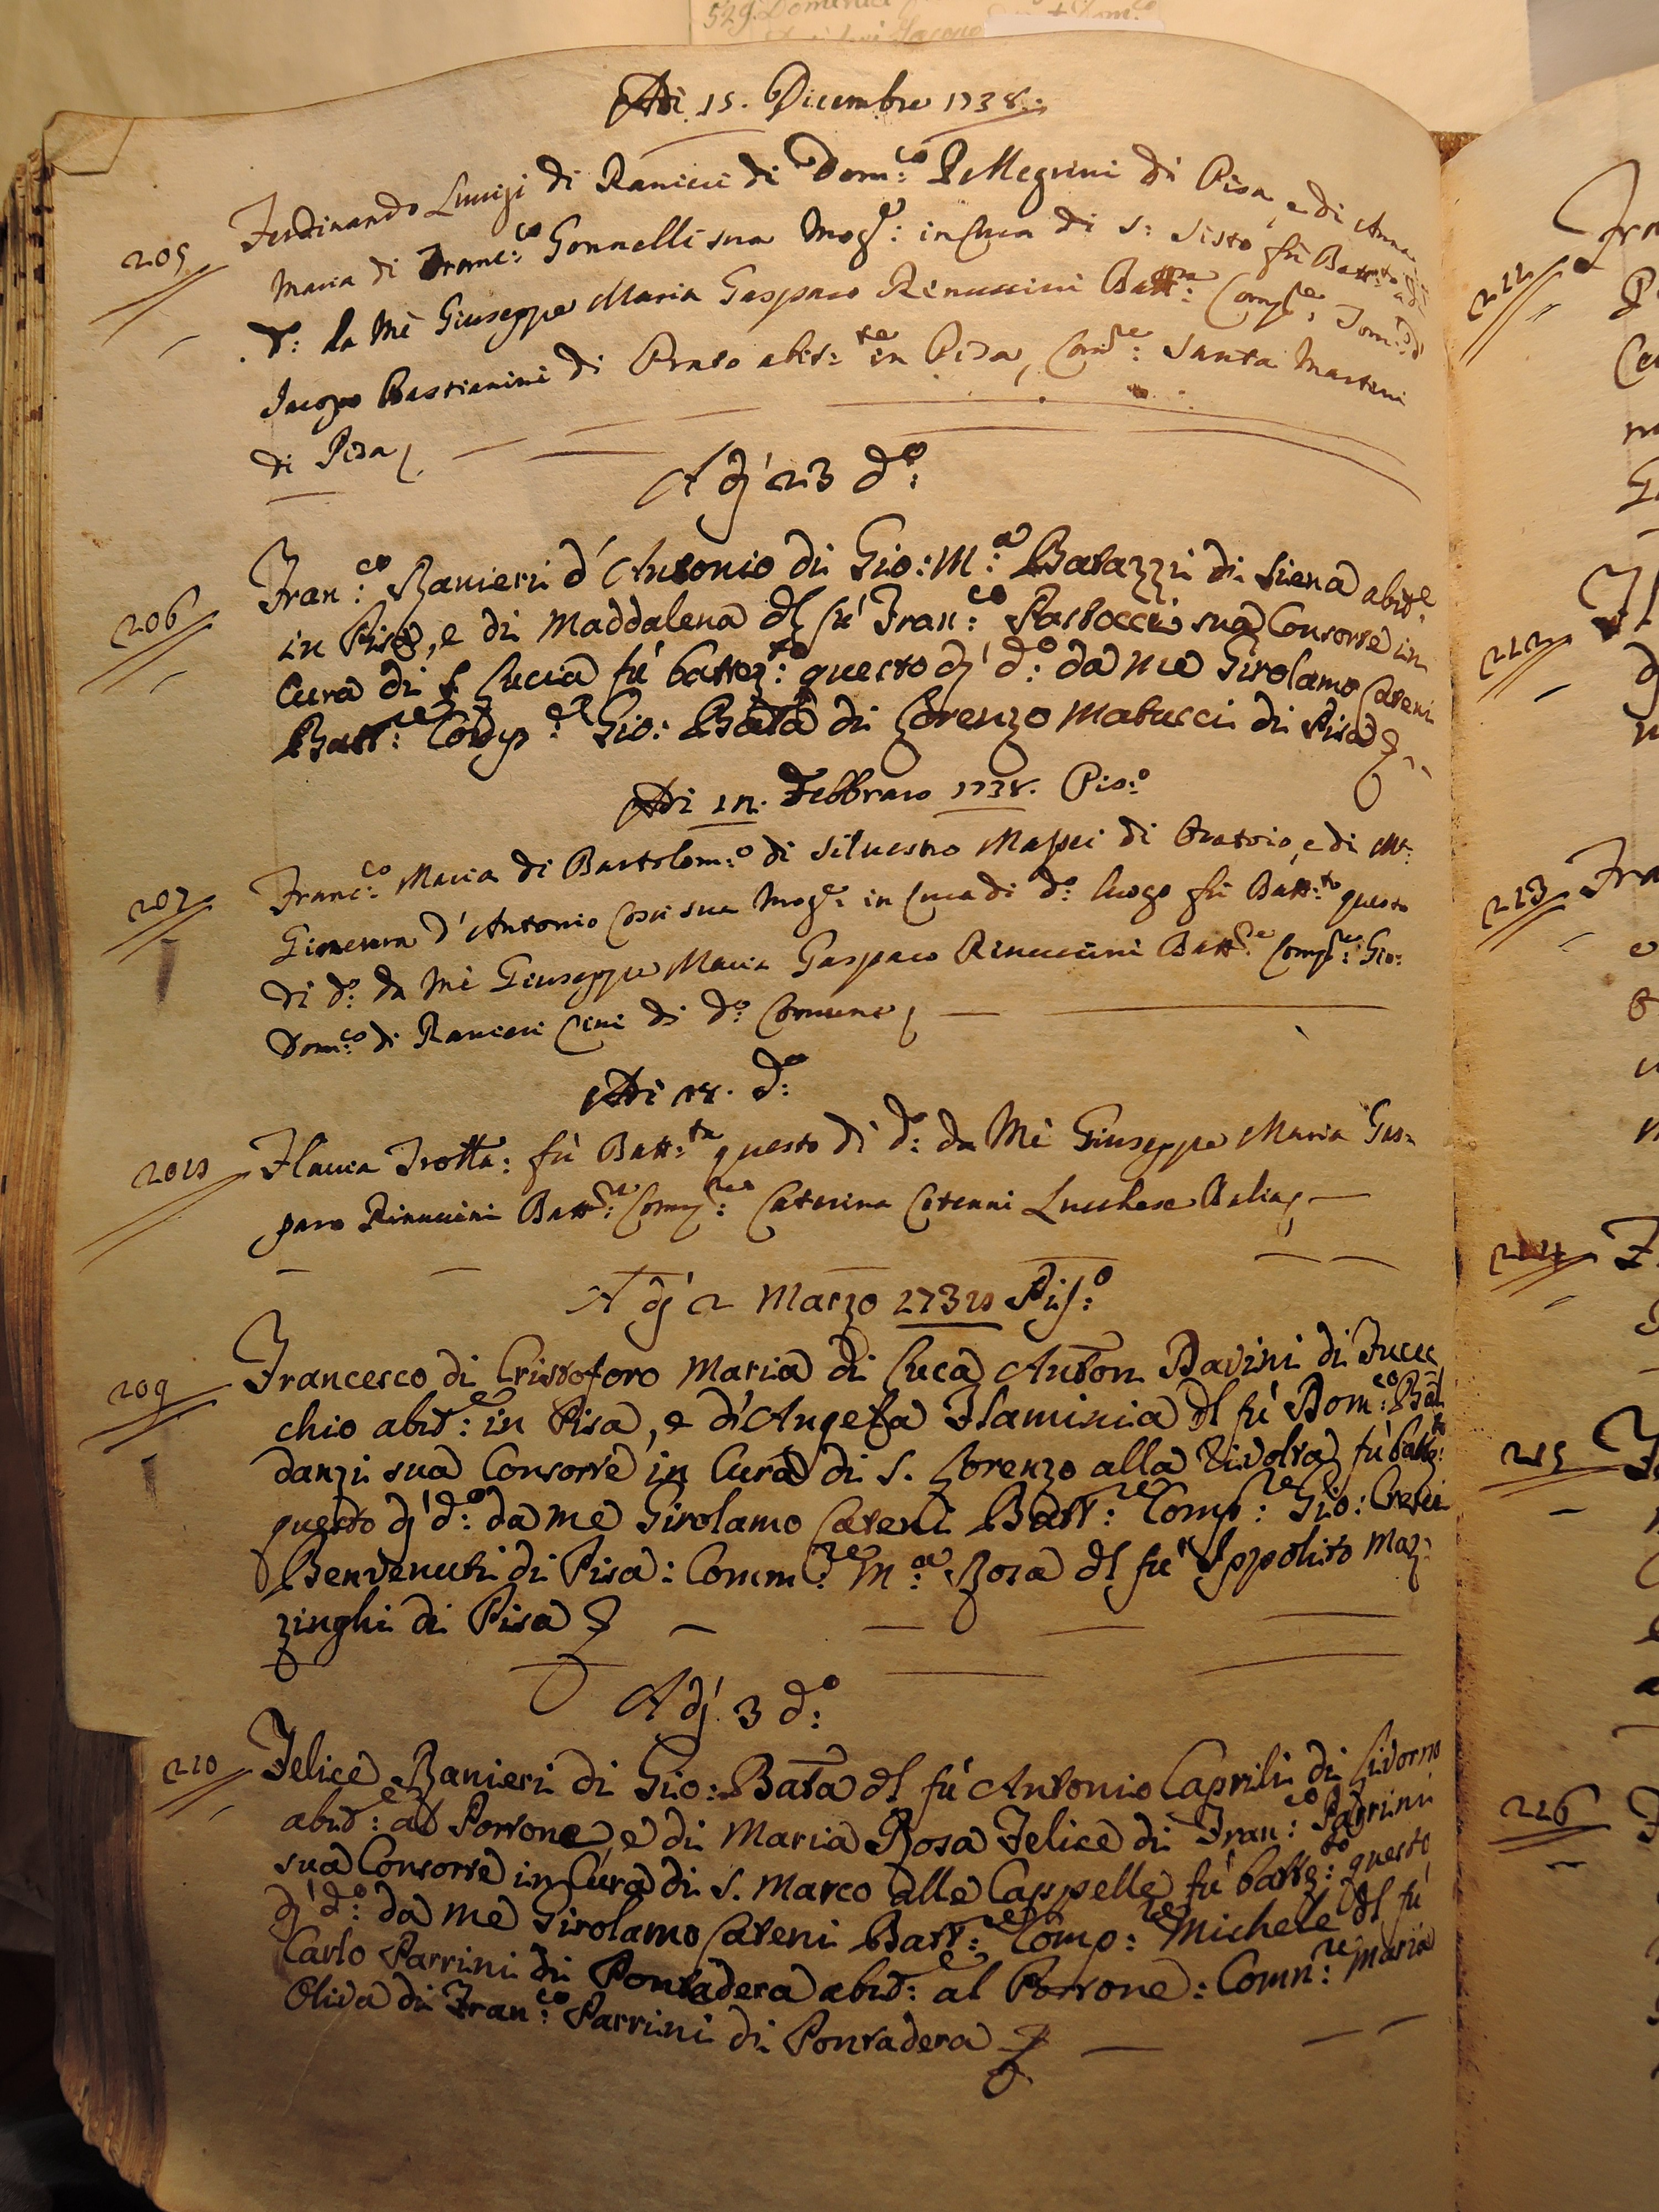 Adì 15. Dicembre 1738.
205 Ferdinando Luigi di Ranieri di Dom:co Pellegrini di Pisa, e di Anna
Maria di Franc:co Gonnelli sua Mog:e in Cura di S: Sisto fù Batt:to
d:o da Mè Giuseppe Maria Gasparo Rinuccini Batt:re Comp:re
Jacopo Bastianini di Prato abit:te in Pisa, Com:re Santa Martini
di Pisa
A dj 23 d:o
206 Fran:co Ranieri d'Antonio di Gio: M:a Batazzi di Siena abit:e
in Pisa, e di Maddalena dl fù Fran:co Pastocci sua Consorte in
Cura di S. Lucia fù battez:to questo dj d:o da me Girolamo Cateni
Batt:re Comp:re Gio: Batta di Lorenzo Matucci di Pisa
Adì 17. Febbraio 1738. Pis:o
207 Franc:co Maria di Bartolom:o di Silvestro Maffei di Oratoio, e di M:a
Ginevra d'Antonio Cosci sua Mog:e in Cura di d:o luogo fù Batt:to questo
dì d:o da Mè Giuseppe Maria Gasparo Rinuccini Batt:re Comp:re Gio:
Dom:co di Ranieri Cini di d:o Comune
Adì 18. d:o
208 Flavia Trotta: fù Batt:ta questo dì d:o da Mè Giuseppe Maria Gas=
paro Rinuccini Batt:re Com:re Caterina Lucchese Balia
A dj 2 Marzo 1738 Pis:o
209 Francesco di Cristoforo Maria di Luca Anton Bavini di Fucec
chio abit:e in Pisa, e d'Angela Flaminia dl fù Dom:co Bal
danzi sua Consorte in Cura di S. Lorenzo alla Rivolta fù battz:to
questo dj d:o da me Girolamo Cateni Batt:re Comp:re Gio:
Benvenuti di Pisa: Comm:re M:a Rosa dl fù Ippolito Maz:
zinghi di Pisa
A dj 3 d:o
210 Felice Ranieri di Gio: Batta dl fù Antonio Caprili di Livorno
abit:e al Portone, e di Maria Rosa Felice di Fran:co Parrini
sua Consorte in Cura di S. Marco alle Cappelle fù battz:to questo
dj d:o da me Girolamo Cateni Batt:re Comp:re Michele dl fù
Carlo Parrini di Pontadera abit:e al Portone: Comm:re Maria
Oliva di Fran:co Parrini di Pontadera
212
213
214
215
216